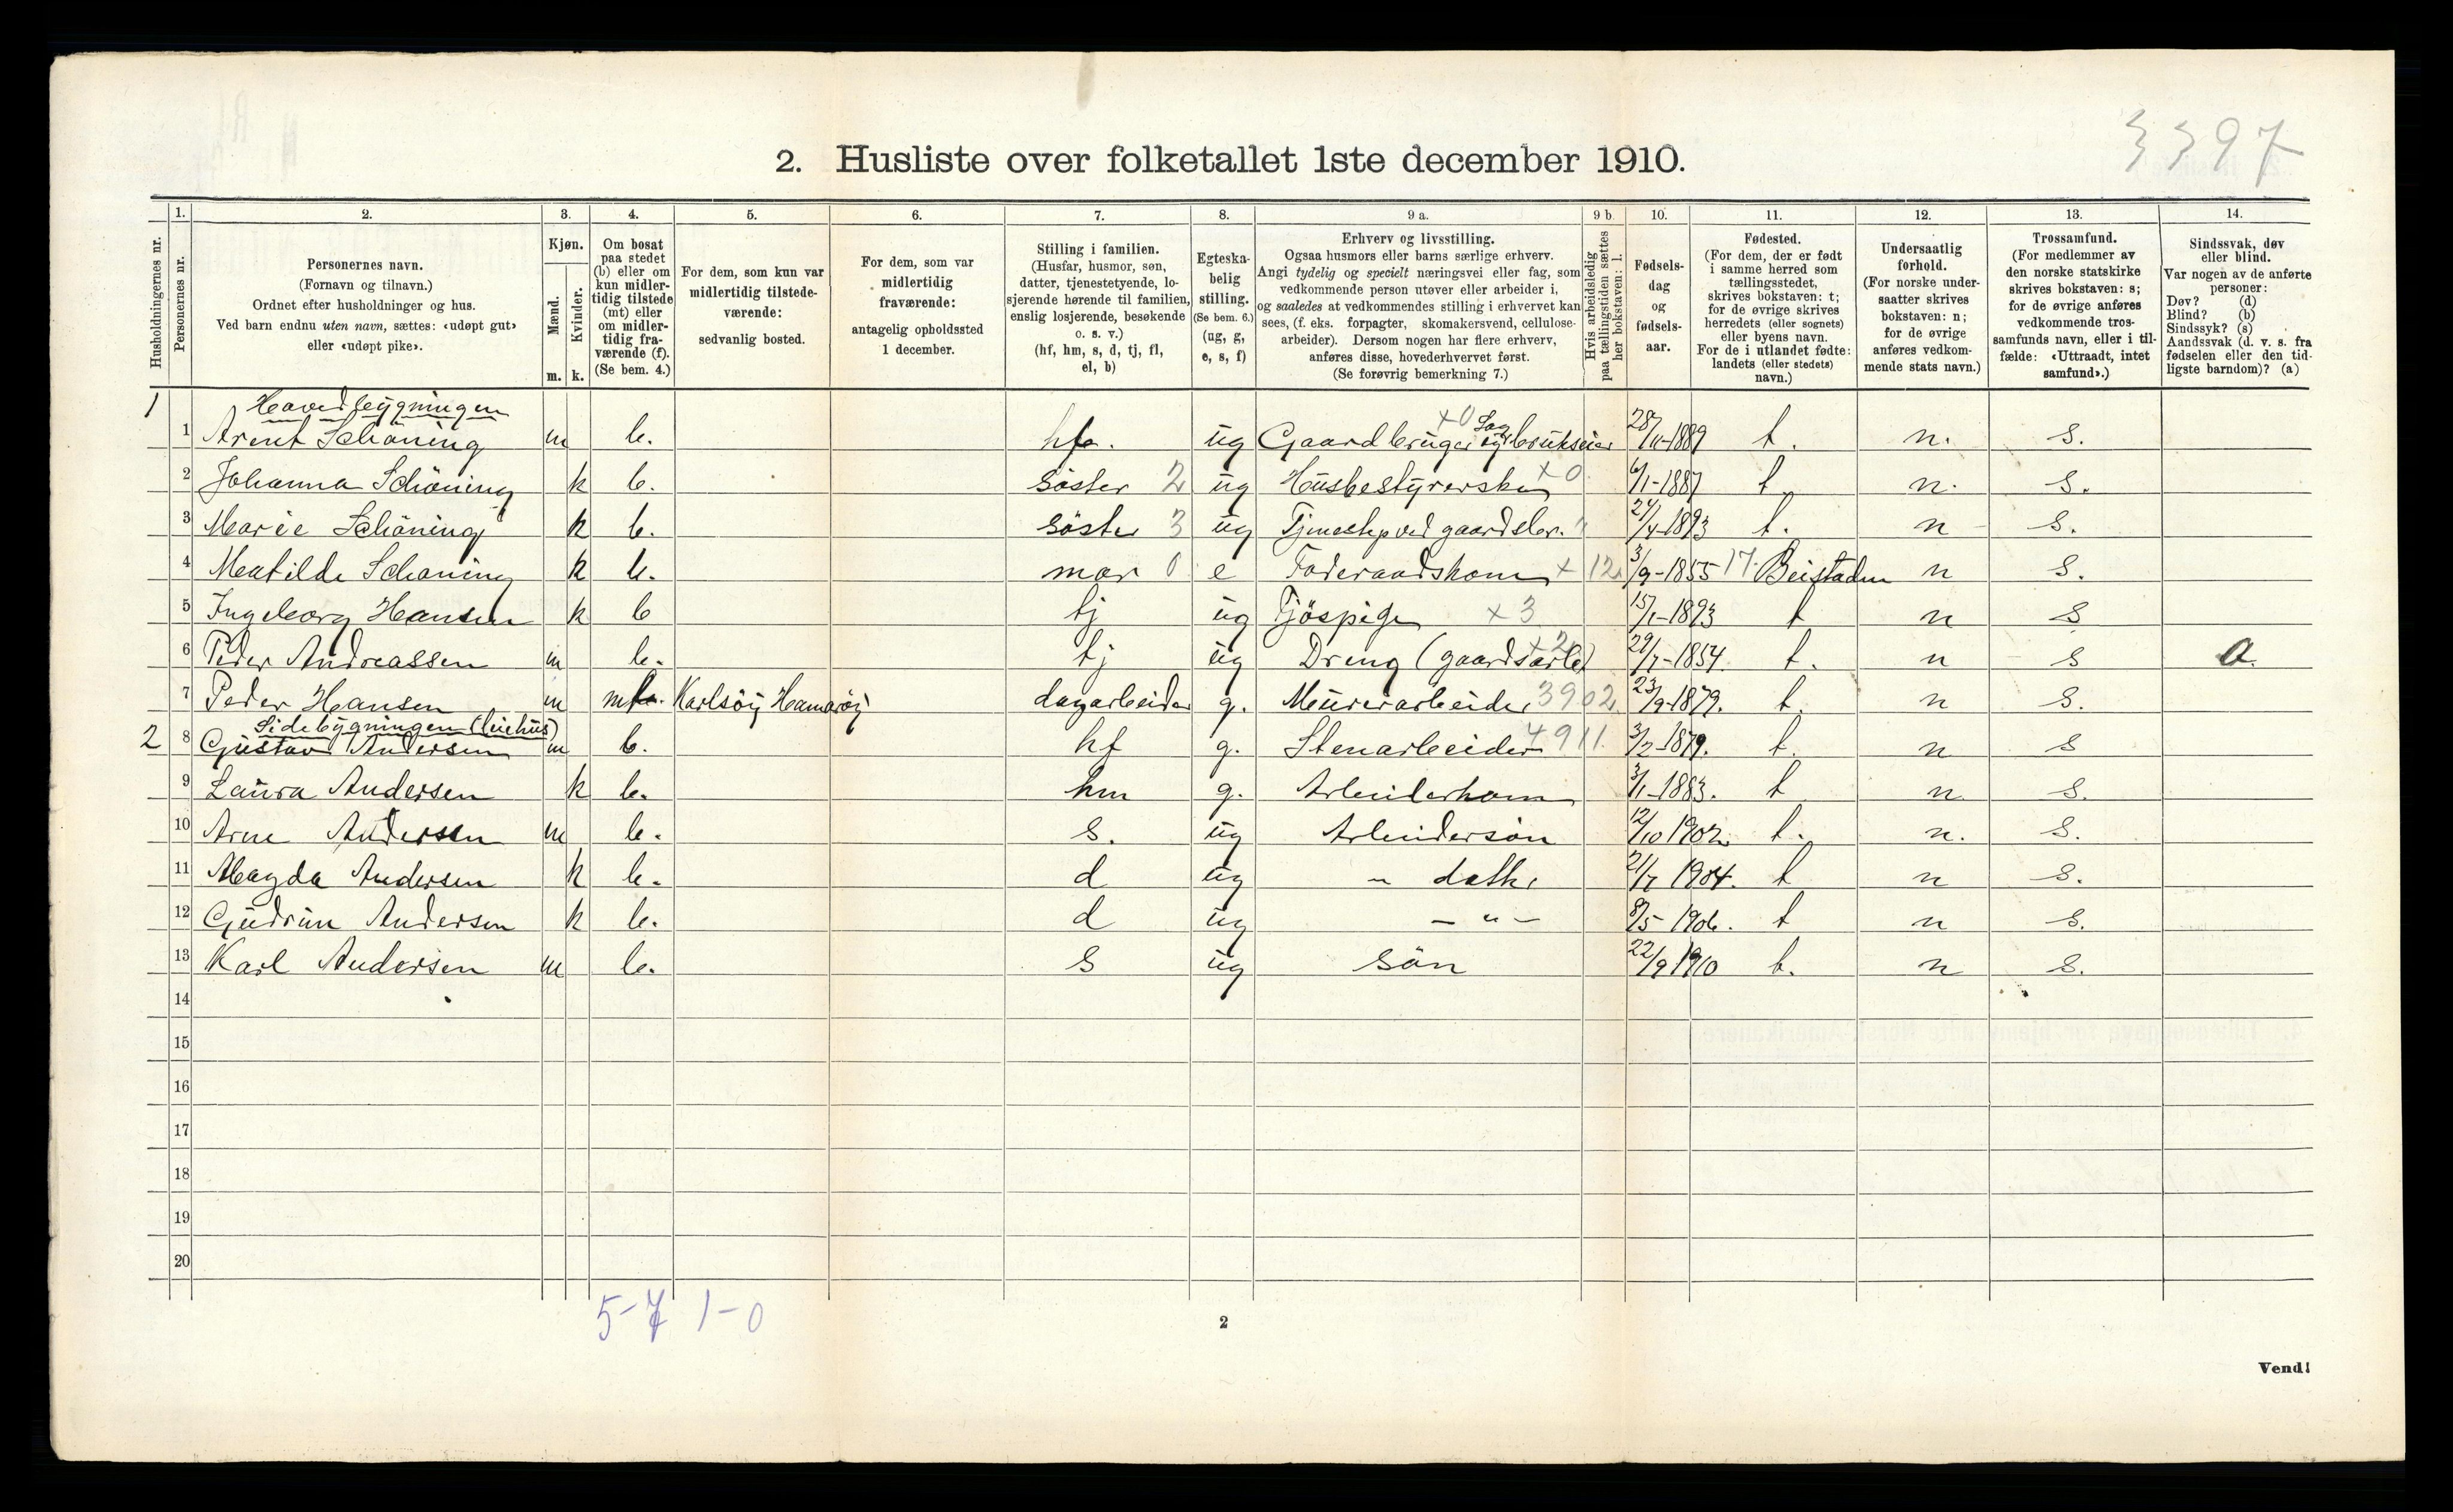 3397
2. Husliste over folketallet 1ste december 1910.
1. 2. 3. 4. 5. 6. 7. 8. 9 a. 9 b. 10. 11. 12. 13. 14.
Husholdningernes nr.
Personernes nr.
Personernes navn.
(Fornavn og tilnavn.)
Ordnet efter husholdninger og hus.
Ved barn endnu uten navn, sættes: «udøpt gut»
eller «udøpt pike».
Kjøn.
Mænd.
Kvinder.
m. k.
Om bosat
paa stedet
(b) eller om
kun midler-
tidig tilstede
(mt) eller
om midler-
tidig fra-
værende (f).
(Se bem. 4.)
For dem, som kun var
midlertidig tilstede-
værende:
sedvanlig bosted.
For dem, som var
midlertidig
fraværende:
antagelig opholdssted
1 december.
Stilling i familien.
(Husfar, husmor, søn,
datter, tjenestetyende, lo-
sjerende hørende til familien,
enslig losjerende, besøkende
o. s. v.)
(hf, hm, s, d, tj, fl,
el, b)
Egteska-
belig
stilling.
(Se bem. 6.)
(ug, g,
e, s, f)
Erhverv og livsstilling.
Ogsaa husmors eller barns særlige erhverv.
Angi tydelig og specielt næringsvei eller fag, som
vedkommende person utøver eller arbeider i,
og saaledes at vedkommendes stilling i erhvervet kan
sees, (f. eks. forpagter, skomakersvend, cellulose-
arbeider). Dersom nogen har flere erhverv,
anføres disse, hovederhvervet først.
(Se forøvrig bemerkning 7.)
Hvis arbeidsledig
paa tællingstiden sættes
her bokstaven: l.
Fødsels-
dag
og
fødsels-
aar.
Fødested.
(For dem, der er født
i samme herred som
tællingsstedet,
skrives bokstaven: t;
for de øvrige skrives
herredets (eller sognets)
eller byens navn.
For de i utlandet fødte:
landets (eller stedets)
navn.)
Undersaatlig
forhold.
(For norske under-
saatter skrives
bokstaven: n;
for de øvrige
anføres vedkom-
mende stats navn.)
Trossamfund.
(For medlemmer av
den norske statskirke
skrives bokstaven: s;
for de øvrige anføres
vedkommende tros-
samfunds navn, eller i til-
fælde: «Uttraadt, intet
samfund».)
Sindssvak, døv
eller blind.
Var nogen av de anførte
personer:
Døv? (d)
Blind? (b)
Sindssyk? (s)
Aandssvak (d. v. s. fra
fødselen eller den tid-
ligste barndom)? (a)
1 Hovedbygningen
1 Arent Schöning m b. hf. ug Gaardbruger og Sagbrukseier x0 28/11-1889 t. n. s.
2 Johanna Schöning k b. söster 2 ug Husbestyrerske x0 6/1-1887 t. n. s.
3 Marie Schöning k b. söster 3 ug 24/4-1893 t. n s.
4 Matilde Schöning k b. mor 0 e Föderaadskone x 12 3/9-1855 17 Beistaden n s.
5 Ingeborg Hansen k b tj ug Tjöspige x 3 15/1-1893 t n s
6 Peder Andreassen m b. tj ug Dreng (gaardsarb) x2 29/7-1854. t. n s a.
7 Peder Hansen m mt. Karlsöy Hamaröy dagarbeider g. Murerarbeider 3902 23/9-1879. t. n s.
Sidebygningen
2 8 Gustav Andersen m b. hf g. Stenarbeider 4911. 3/2-1879. t. n s
9 Laura Andersen k b. hm g. Arbeiderkone 3/1-1883. t n s.
10 Arne Andersen m b. s. ug Arbeidersön 12/10 1902. t. n. s.
11 Magda Andersen k b. d ug – datter 21/7 1904. t n s.
12 Gudrun Andersen k b. d ug – " – 8/5-1906. t n s.
13 Karl Andersen m b. s ug sön 22/9 1910 t. n s.
14
15
16
17
18
19
20
5-7 1-0
2
Vend!